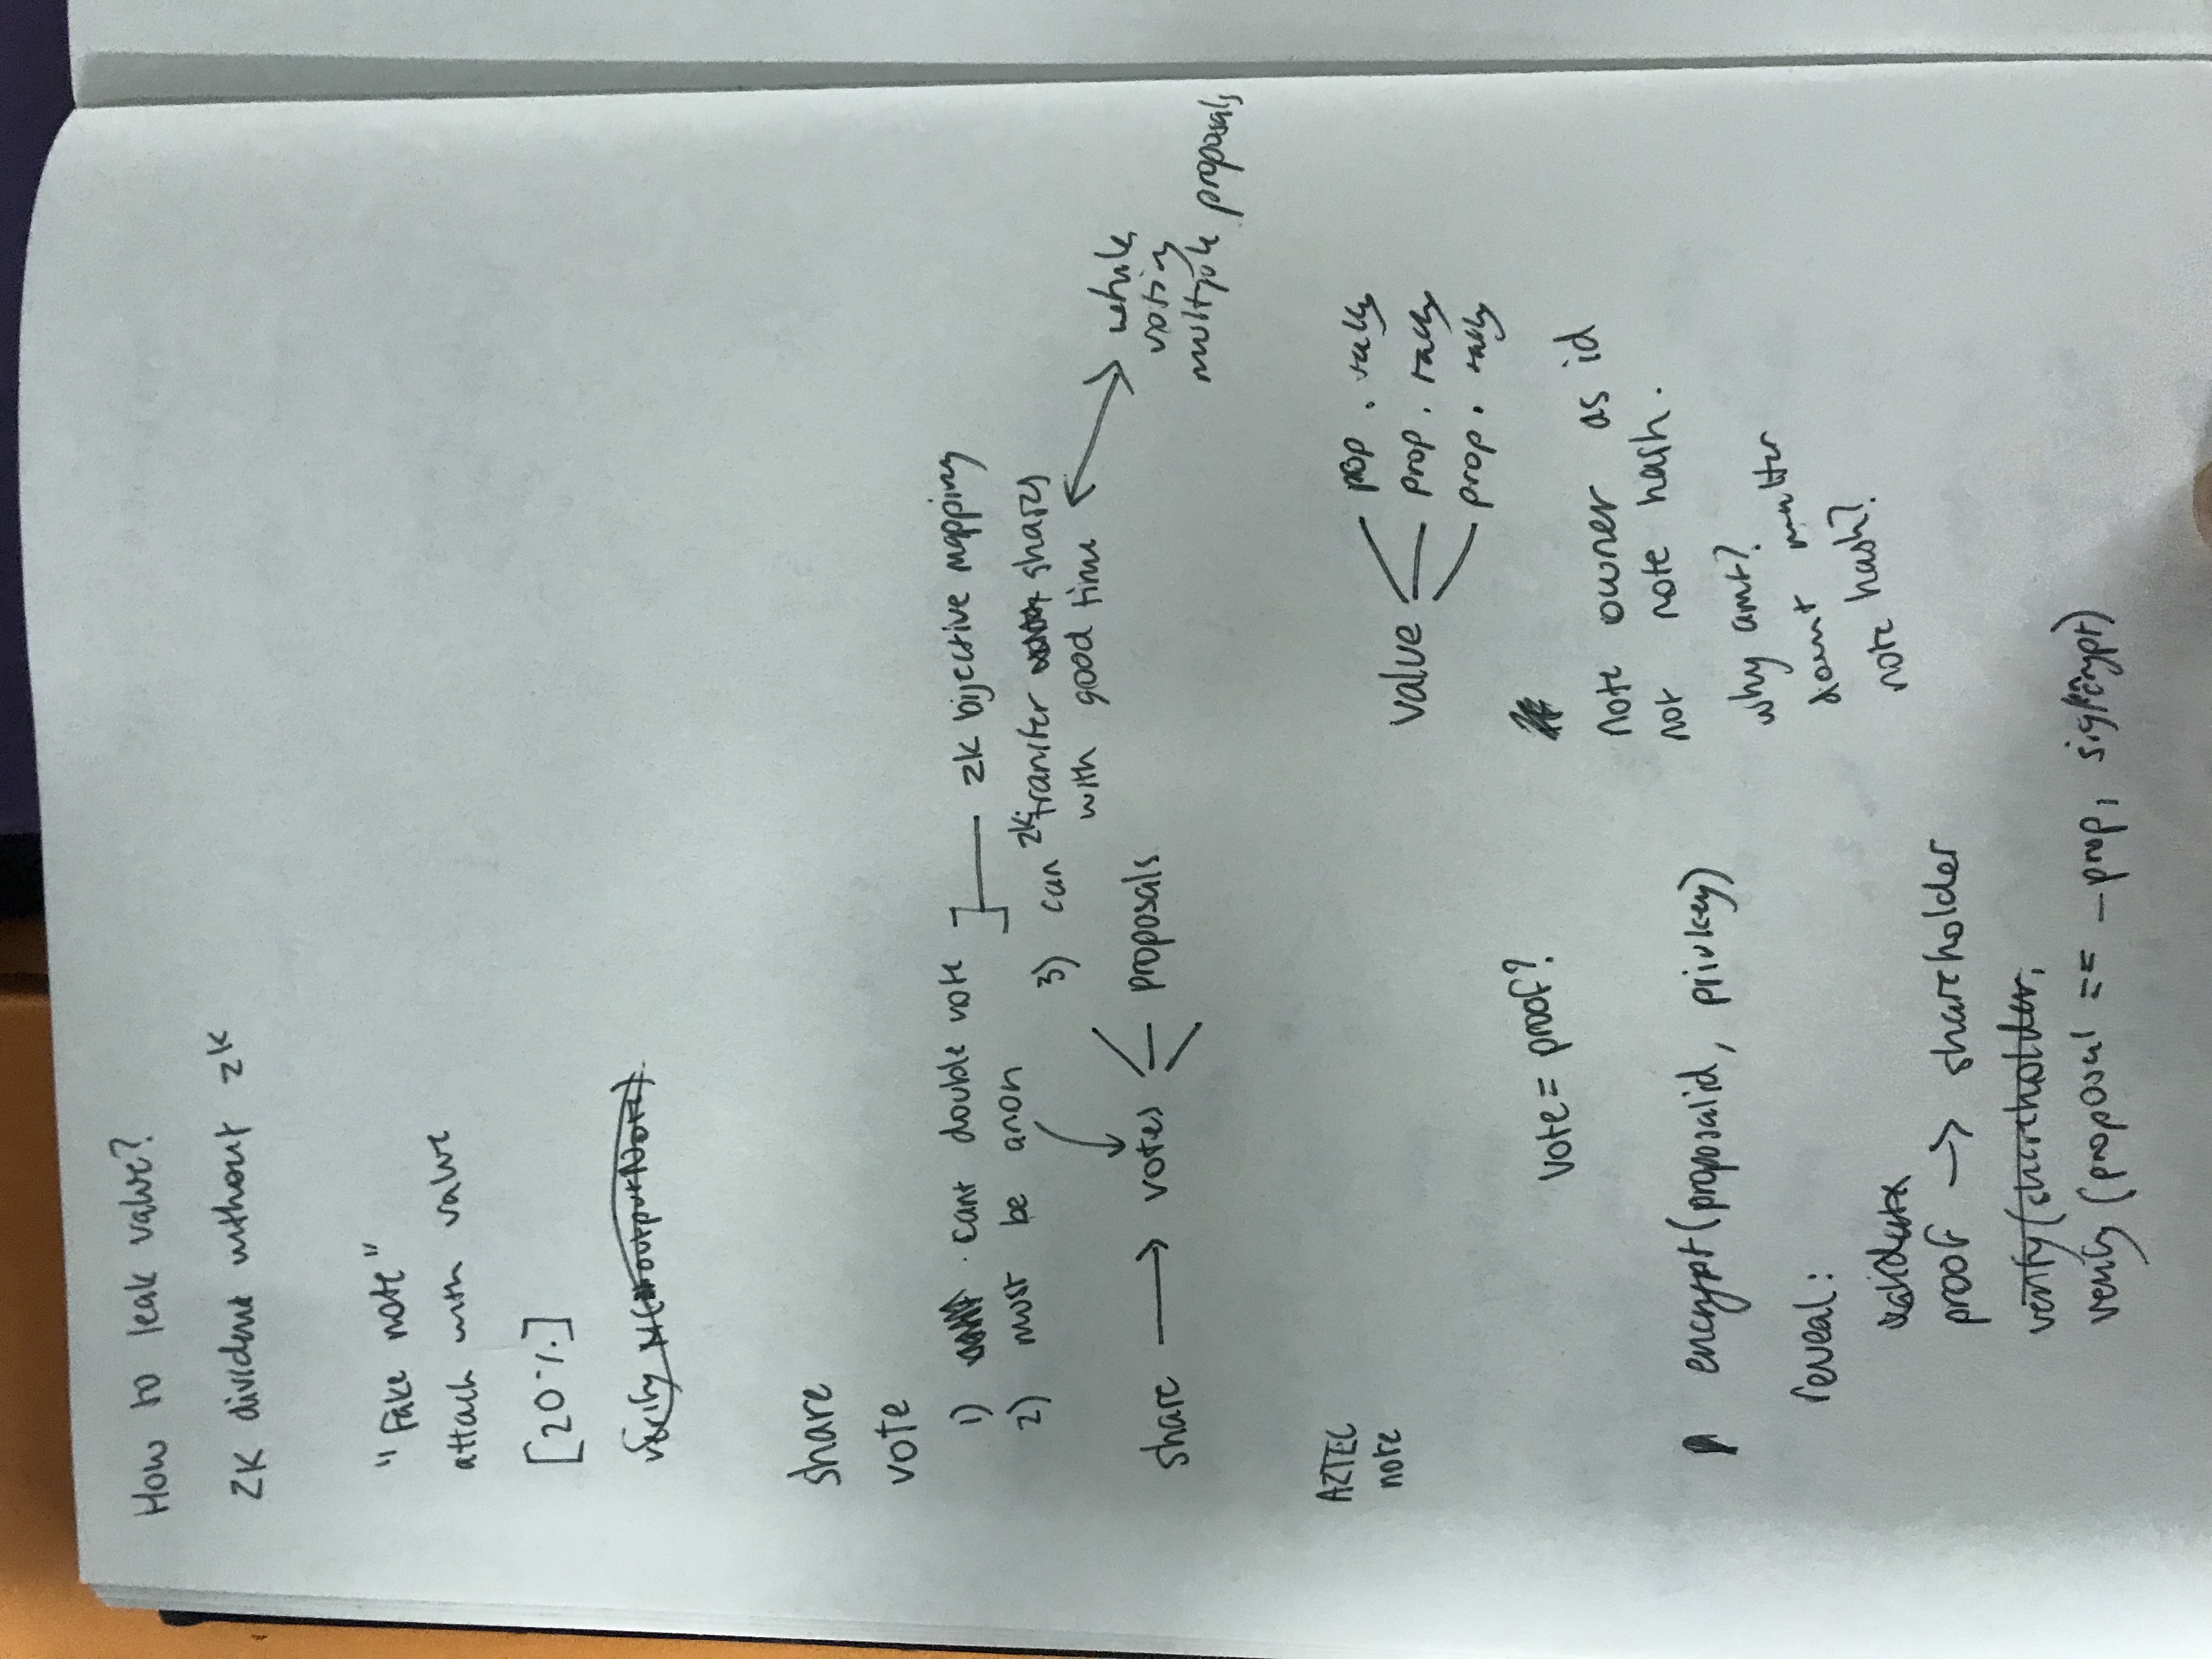 How to leak value?
ZK dividend without ZK
"Fake note"
attach with value
[20%]
verify
share
vote
1) cant double vote
2) must be anon
zk bijective mapping
3) can zk transfer shares
with good time
while
voting
multiple proposals
share → votes
proposals
AZTEC
note
value
prop. tally
prop. tally
prop. tally
vote = proof?
note owner as id
not note hash.
why amt?
doesnt matter
note hash?
encrypt(proposalid, privkey)
reveal:
validate
proof → shareholder
verify(shareholder,
verify(proposal == _prop,